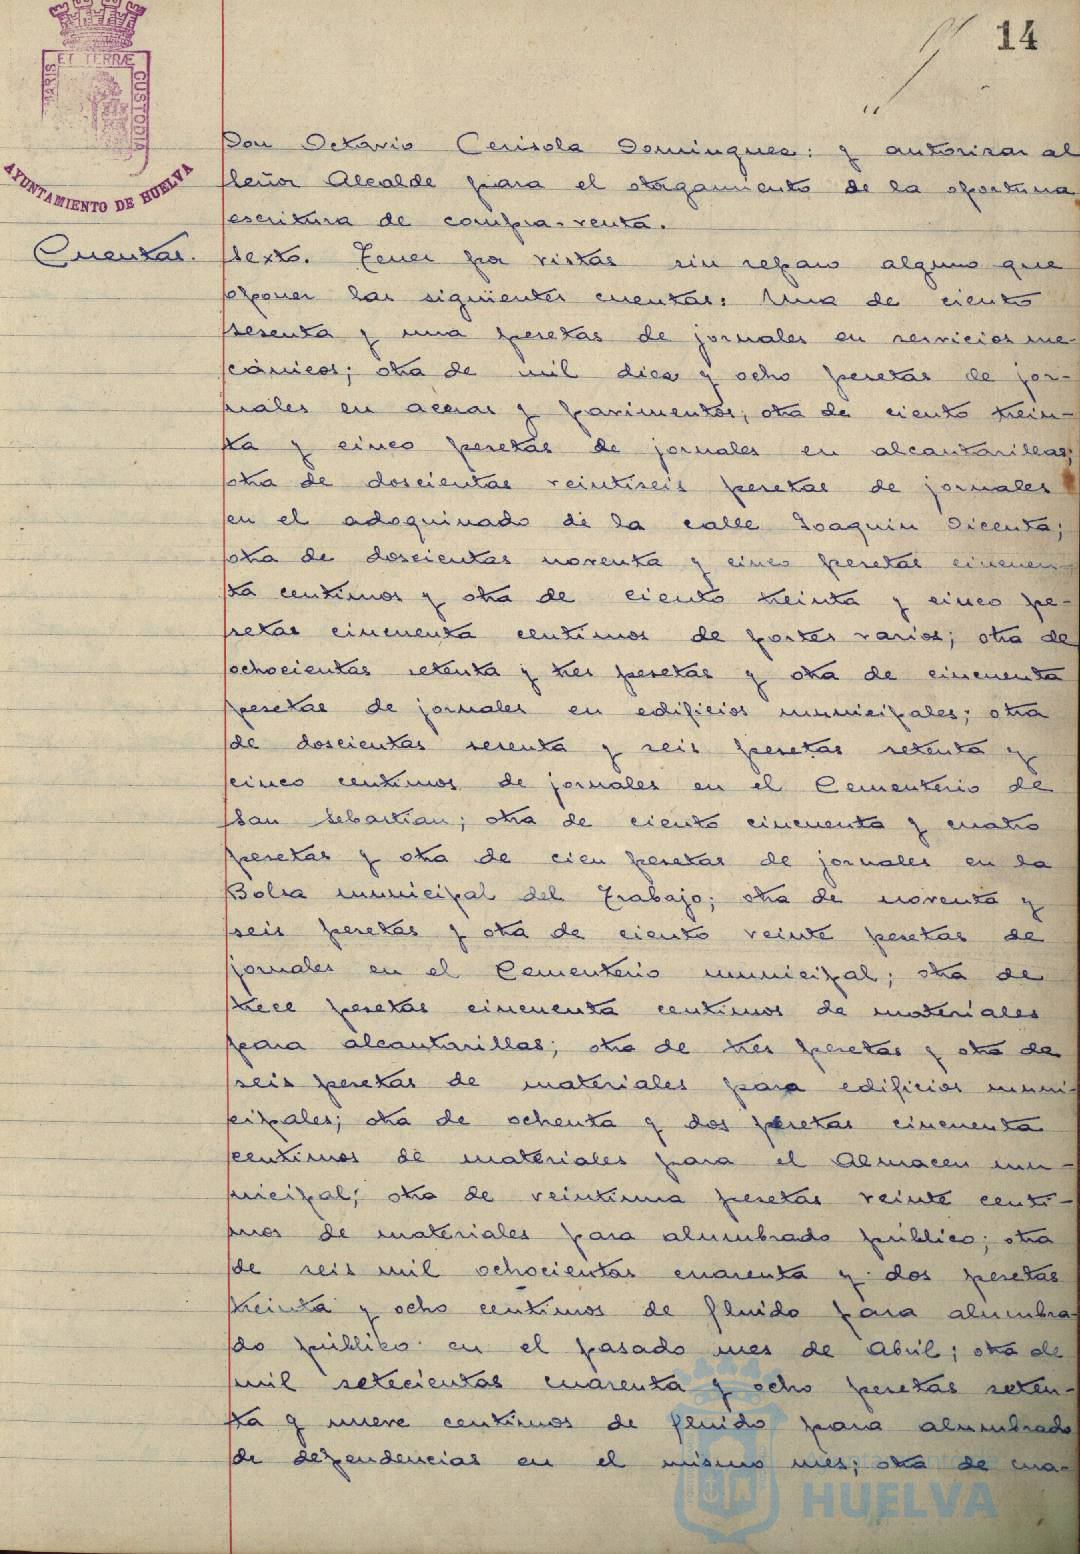 14
MARIS ET TERRÆ CUSTODIA
AYUNTAMIENTO DE HUELVA
Don Octavio Cerisola Dominguez: y autorizar al
Señor Alcalde para el otorgamiento de la oportuna
escritura de compra-venta.
Cuentas.
Sexto. Tener por vistas sin reparo alguno que
oponer las siguientes cuentas: Una de ciento
sesenta y una pesetas de jornales en servicios me-
cánicos; otra de mil diez y ocho pesetas de jor-
nales en aceras y pavimentos; otra de ciento trein-
ta y cinco pesetas de jornales en alcantarillas;
otra de doscientas veintiseis pesetas de jornales
en el adoquinado de la calle Joaquin Dicenta;
otra de doscientas noventa y cinco pesetas cincuen-
ta centimos y otra de ciento treinta y cinco pe-
setas cincuenta centimos de portes varios; otra de
ochocientas setenta y tres pesetas y otra de cincuenta
pesetas de jornales en edificios municipales; otra
de doscientas sesenta y seis pesetas setenta y
cinco centimos de jornales en el Cementerio de
San Sebastian; otra de ciento cincuenta y cuatro
pesetas y otra de cien pesetas de jornales en la
Bolsa municipal del Trabajo; otra de noventa y
seis pesetas y otra de ciento veinte pesetas de
jornales en el Cementerio municipal; otra de
trece pesetas cincuenta centimos de materiales
para alcantarillas; otra de tres pesetas y otra de
seis pesetas de materiales para edificios muni-
cipales; otra de ochenta y dos pesetas cincuenta
centimos de materiales para el Almacen mu-
nicipal; otra de veintiuna pesetas veinte centi-
mos de materiales para alumbrado público; otra
de seis mil ochocientas cuarenta y dos pesetas
treinta y ocho centimos de fluido para alumbra-
do público en el pasado mes de Abril; otra de
mil setecientas cuarenta y ocho pesetas seten-
ta y nueve centimos de fluido para alumbrado
de dependencias en el mismo mes; otra de cua-
HUELVA